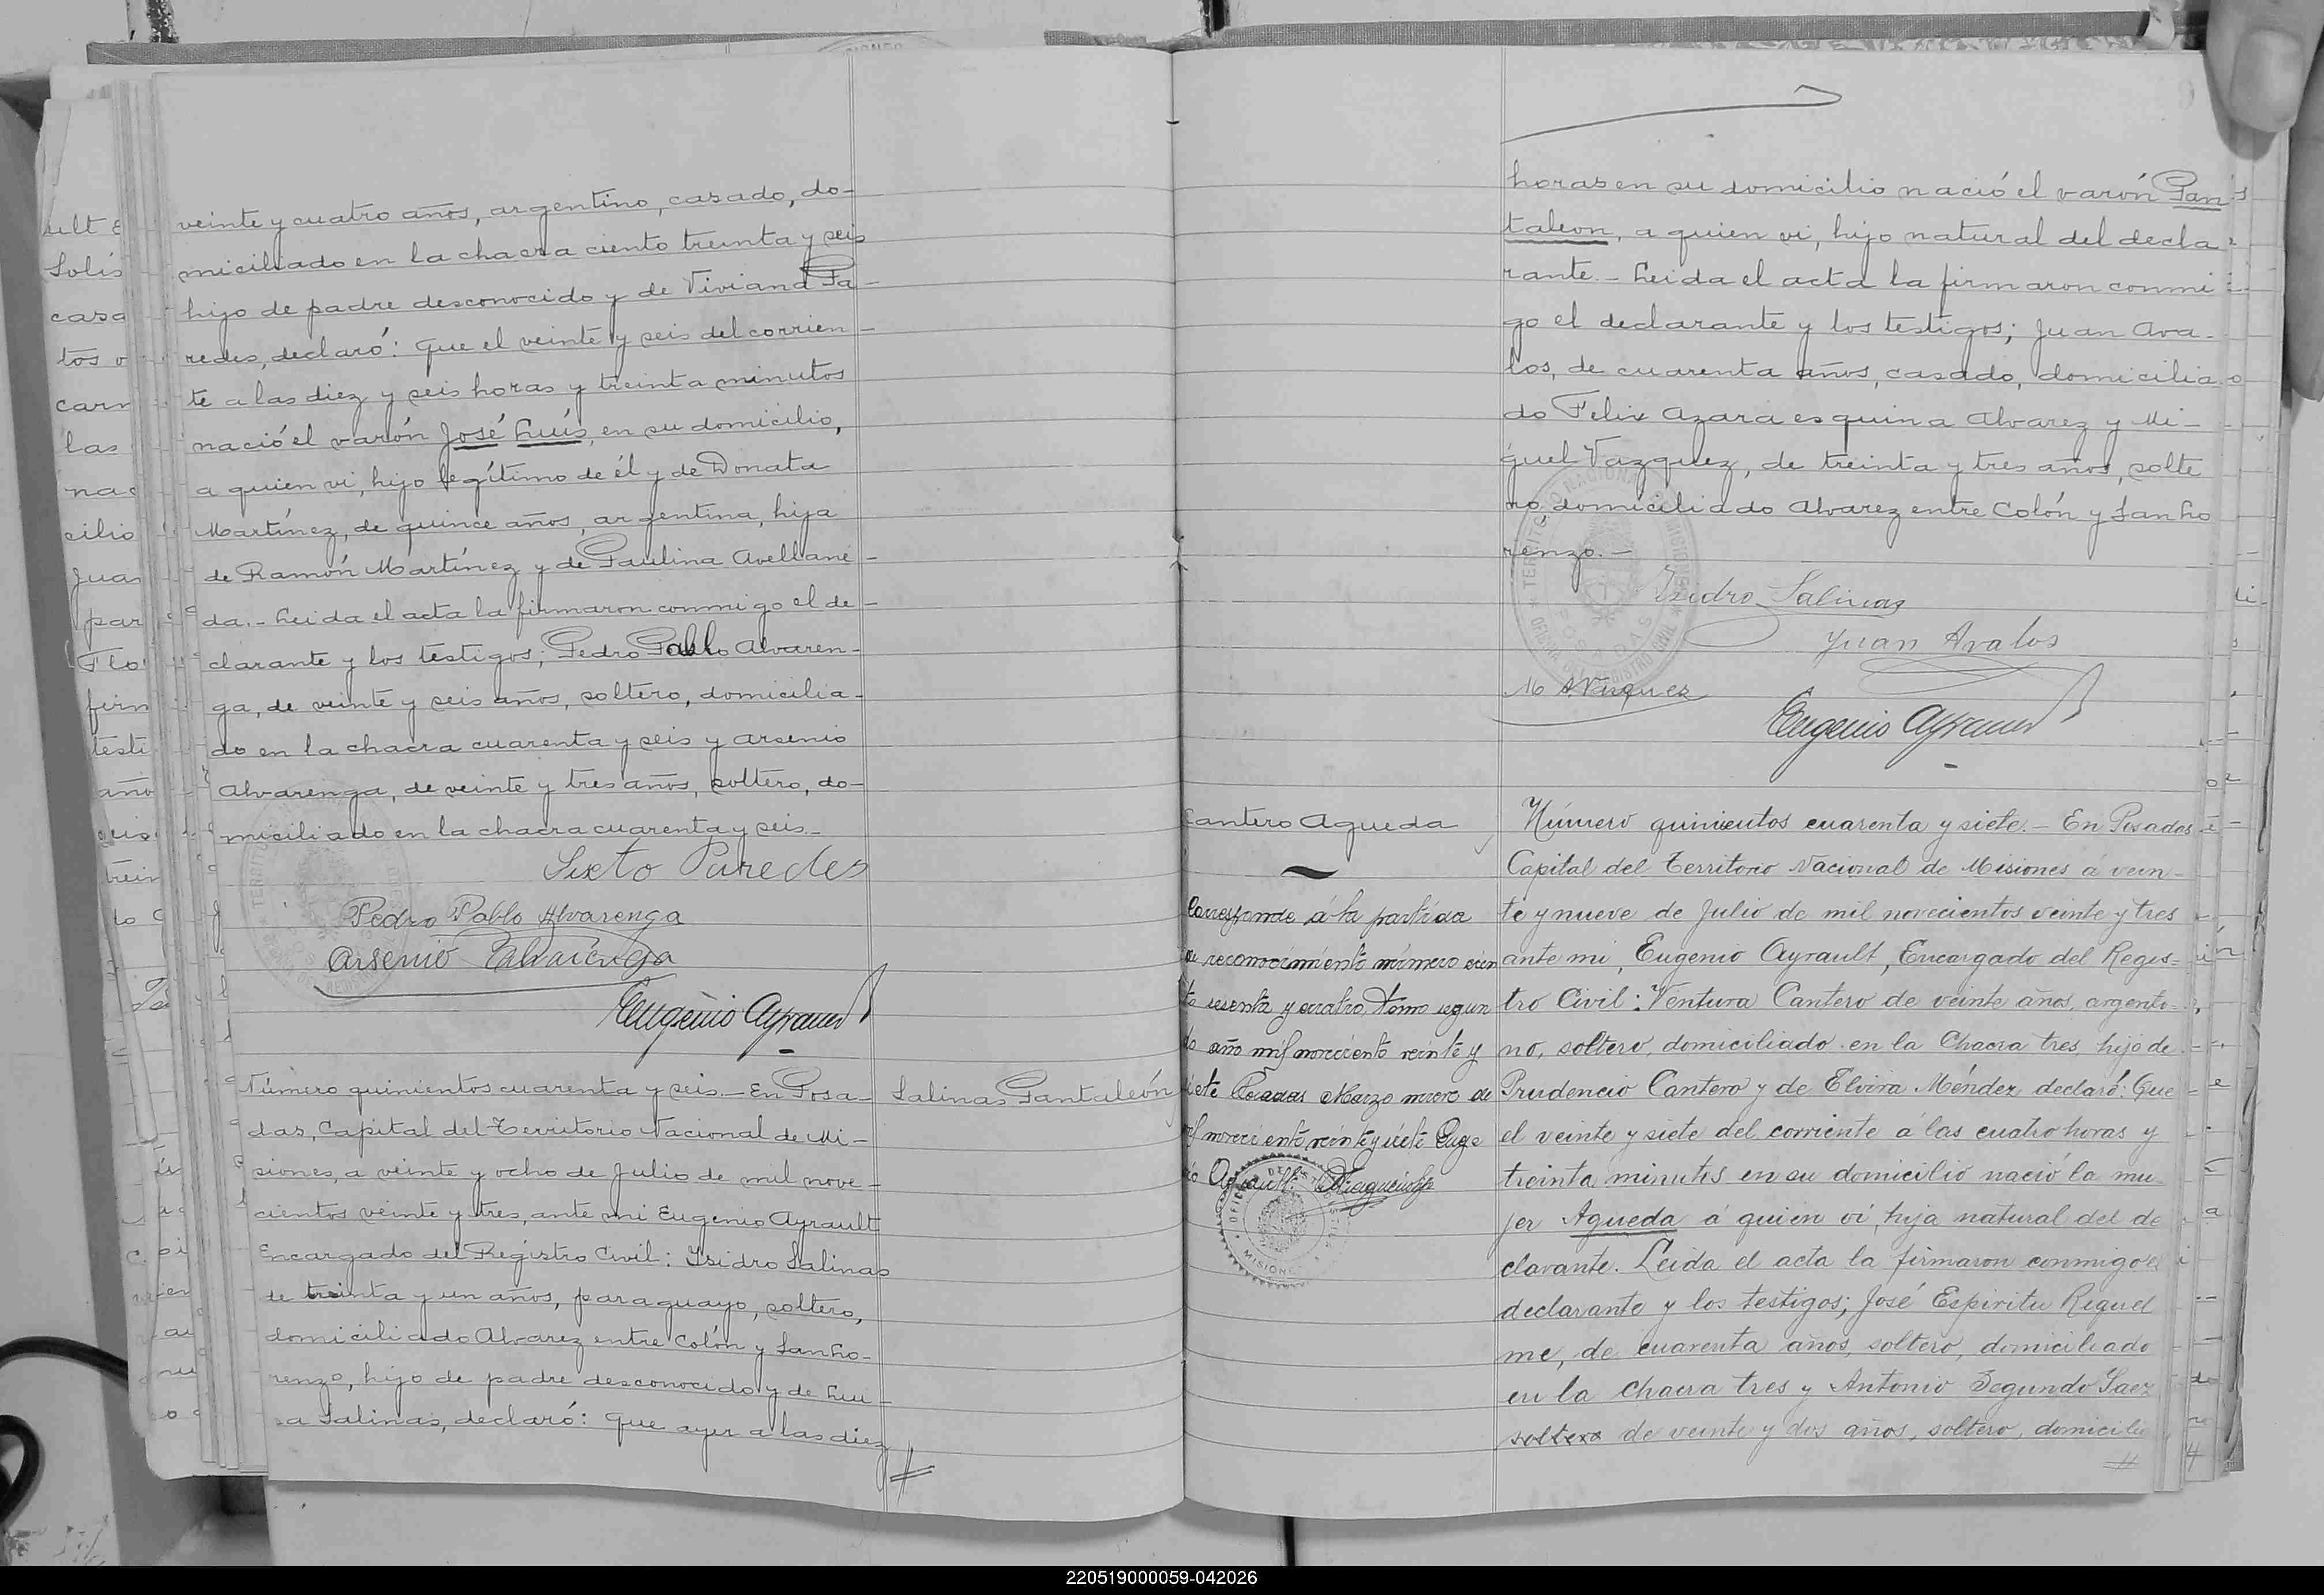 veinte y cuatro años, argentino, casado, do-
miciliado en la chacra ciento treinta y seis
hijo de padre desconocido y de Viviana Pa-
redes, declaró: Que el veinte y seis del corrien-
te a las diez y seis horas y treinta minutos
nació el varón José Luís, en su domicilio,
a quien vi, hijo legítimo de él y de Donata
Martínez, de quince años, argentina, hija
de Ramón Martínez y de Paulina Avellane-
da.- Leida el acta la firmaron conmigo el de-
clarante y los testigos; Pedro Pablo Alvaren-
ga, de veinte y seis años, soltero, domicilia-
do en la chacra cuarenta y seis y Arsenio
Alvarenga, de veinte y tres años, soltero, do-
miciliado en la chacra cuarenta y seis.-
Sixto Paredes
Pedro Pablo Alvarenga
Arsenio Alvarenga
Eugenio Ayrault
Salinas Pantaleón
Número quinientos cuarenta y seis.- En Posa-
das, Capital del Territorio Nacional de Mi-
siones, a veinte y ocho de Julio de mil nove-
cientos veinte y tres, ante mi Eugenio Ayrault
Encargado del Registro Civil: Isidro Salinas
de treinta y un años, paraguayo, soltero,
domiciliado Alvarez entre Colón y San Lo-
renzo, hijo de padre desconocido y de Lui-
sa Salinas, declaró: Que ayer a las diez
horas en su domicilio nació el varón Pan
taleon, a quien vi, hijo natural del decla
rante.- Leida el acta la firmaron conmi
go el declarante y los testigos; Juan Ava-
los, de cuarenta años, casado, domicilia
do Felix Azara esquina Alvarez y Mi-
guel Vazquez, de treinta y tres años, solte
ro, domiciliado Alvarez entre Colón y San Lo
renzo.-
Isidro Salinas
Juan Avalos
M A Vasquez
Eugenio Ayrault
Cantero Agueda
Corresponde á la partida
de reconocimiento número cien
to sesenta y cuatro Tomo segun
do año mil novecientos veinte y
siete Posadas Marzo nueve de
mil novecientos veinte y siete Euge
nio Ayrault.
Número quinientos cuarenta y siete.- En Posadas
Capital del Territorio Nacional de Misiones á vein-
te y nueve de Julio de mil novecientos veinte y tres
ante mi, Eugenio Ayrault, Encargado del Regis=
tro Civil: Ventura Cantero de veinte años, argenti=
no, soltero, domiciliado en la Chacra tres, hijo de
Prudencio Cantero y de Elvira Méndez declaró: Que
el veinte y siete del corriente á las cuatro horas y
treinta minutos en su domicilio nació la mu
jer Agueda á quien vi, hija natural del de
clarante. Leida el acta la firmaron conmigo el
declarante y los testigos; José Espiritu Riquel
me, de cuarenta años, soltero, domiciliado
en la chacra tres y Antonio Segundo Saez
soltero de veinte y dos años, soltero, domicilia
220519000059-042026